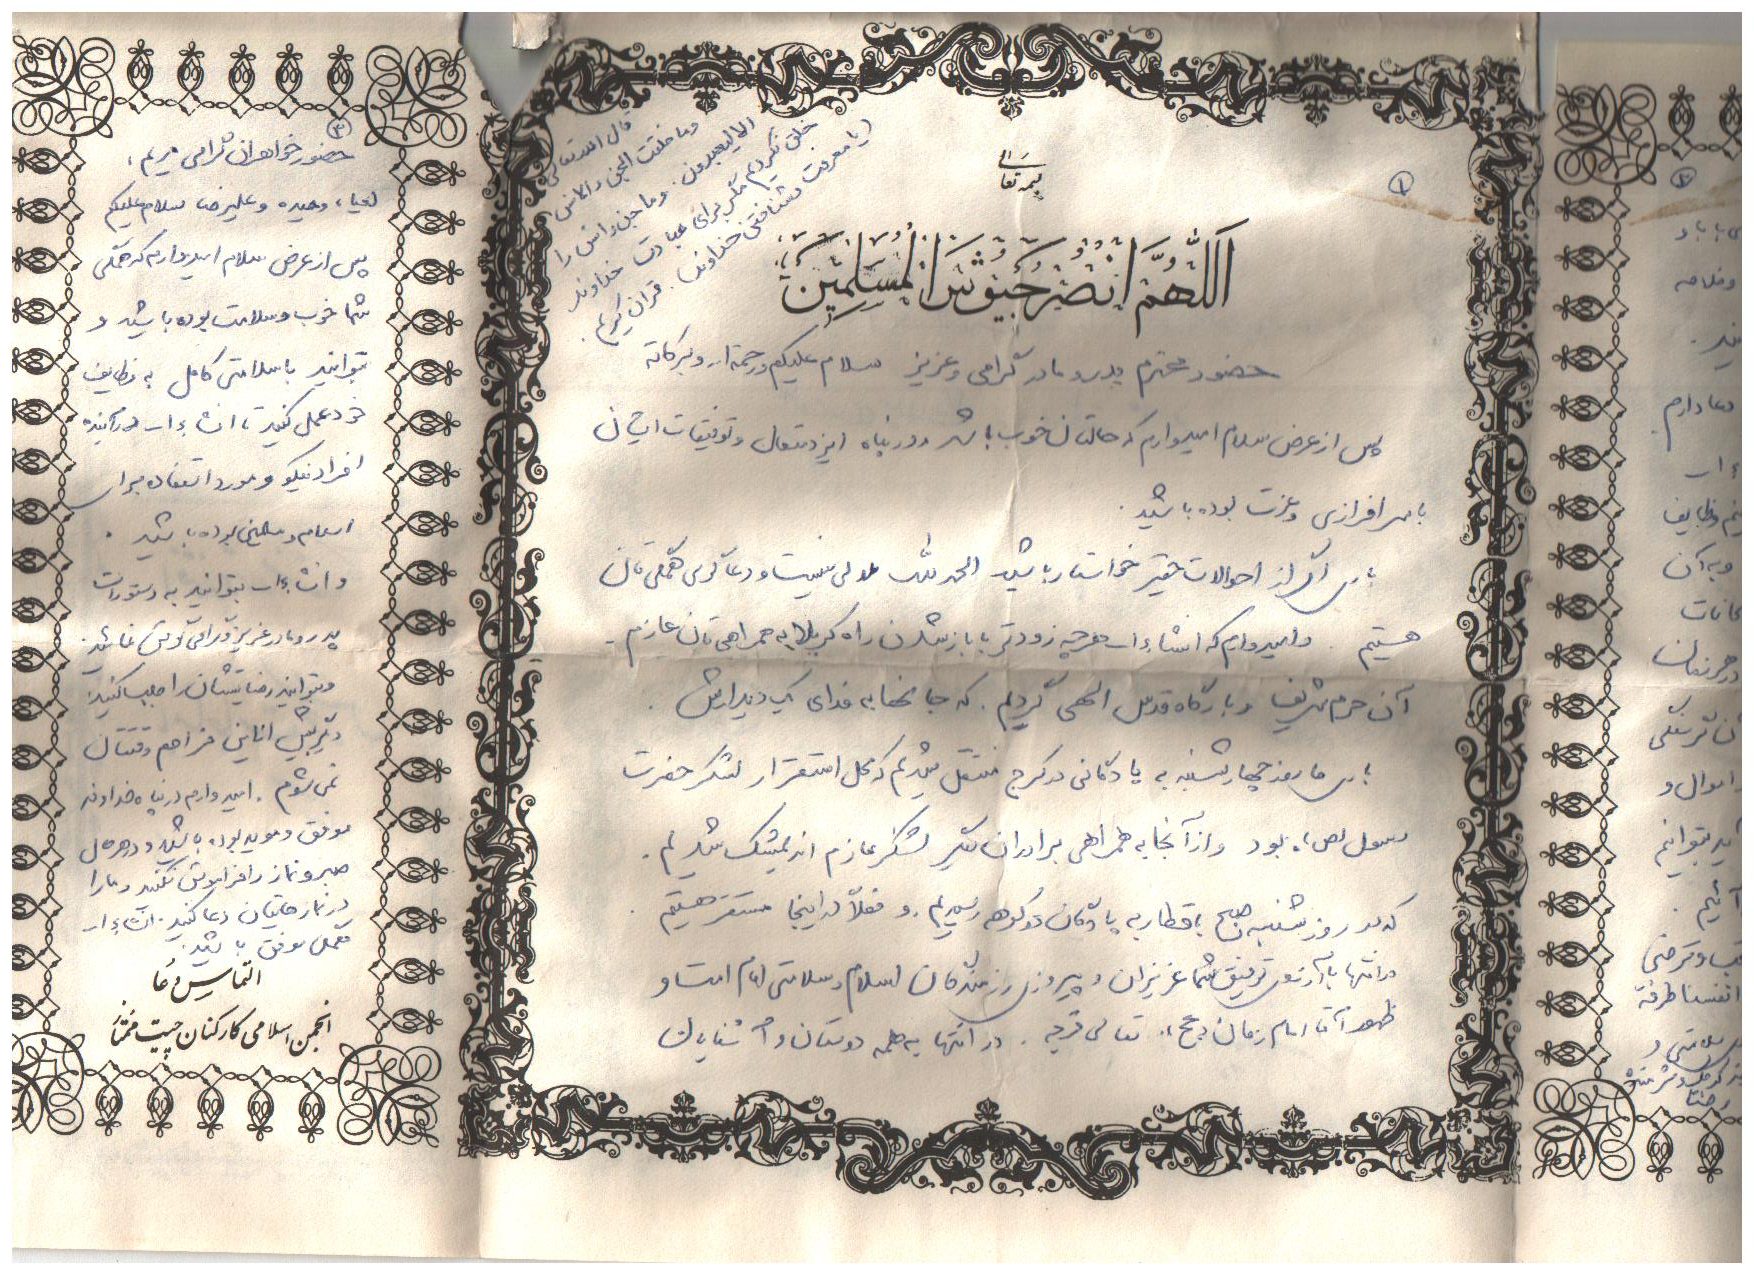 بسمه تعالی
۱
قال الله تعالی
وما خلقت الجن والانس
الا لیعبدون. وما جن وانس را
خلق نکردیم مگر برای عبادت خداوند
(یا معرفت و شناختن خداوند). قرآن کریم.
اَللّهُمَّ انْصُرْ جُیُوشَ الْمُسْلِمینَ
حضور محترم پدر و مادر گرامی و عزیز سلام علیکم ورحمة اله وبرکاته
پس از عرض سلام امیدوارم که حالتان خوب باشد و در پناه ایزد متعال و توفیقات ایشان
با سرافرازی و عزت بوده باشید.
باری اگر از احوالات حقیر خواستار باشید الحمدلله ملالی نیست و دعاگوی همگی تان
هستیم. و امیدوارم که انشاءاله هرچه زودتر با باز شدن راه کربلا به همراهی تان عازم
آن حرم شریف و بارگاه قدس الهی گردیم. که جانها به فدای یک دیدارش.
باری ما روز چهارشنبه به پادگانی در کرج منتقل شدیم که محل استقرار لشکر حضرت
رسول (ص) بود و از آنجا به همراهی برادران دیگر لشکر عازم اندیمشک شدیم.
که در روز شنبه صبح با قطار به پادگان دوکوهه رسیدیم. و فعلاً در اینجا مستقر هستیم.
در انتها با آرزوی توفیق شما عزیزان و پیروزی رزمندگان اسلام و سلامتی امام امت و
ظهور آقا امام زمان (عج) تعالی فرجه. در انتها به همه دوستان و آشنایان
۳
حضور خواهران گرامی مریم،
لعیا، وحیده و علیرضا سلام علیکم
پس از عرض سلام امیدوارم که همگی
شما خوب و سلامت بوده باشید و
بتوانید با سلامتی کامل به وظایف
خود عمل کنید تا انشاءاله در آینده
افراد نیکو و مورد استفاده برای
اسلام و مسلمین بوده باشید.
وانشاءاله بتوانید به دستورات
پدر و مادر عزیز و گرامی گوش نمائید.
و بتوانید رضایتشان را جلب کنید.
دیگر بیش از این مزاحم وقتتان
نمی شوم. امیدوارم در پناه خداوند
موفق و موید بوده باشید و در هر حال
صبر و نماز را فراموش نکنید و ما را
در نمازهایتان دعا کنید. انشاءاله
همگی موفق باشید.
التماس دعا
انجمن اسلامی کارکنان چیت ممتاز
۲
بابا و
و خلاصه
دعا دارم
وظایف
و به آن
اموال و
بتوانیم
سلامتی و